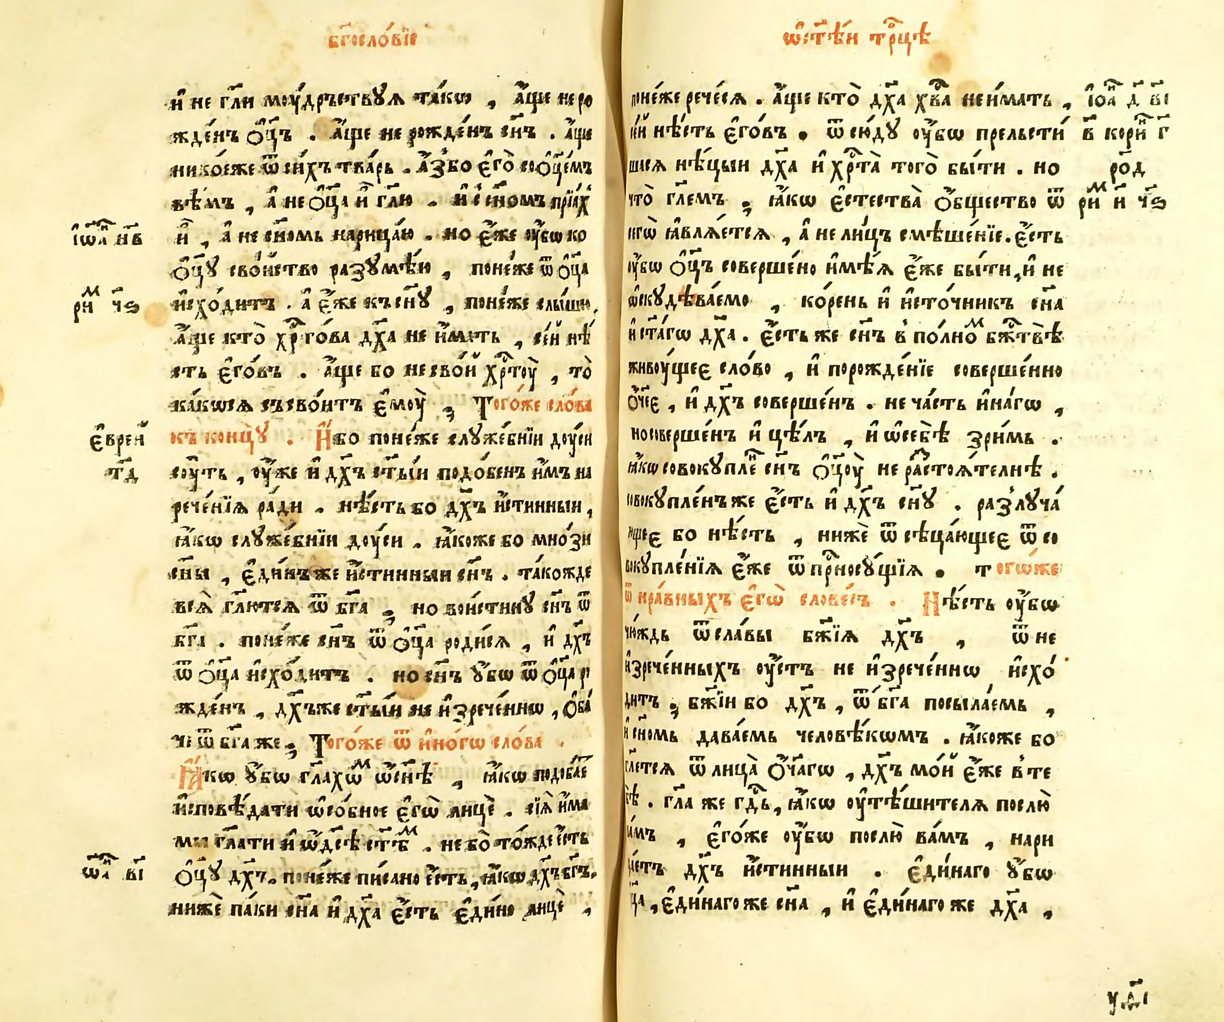 бг҃ословїе
и҆ не гл҃и моу́дръствꙋѧ та́кѡ , а҆́ще не ро
жде́нъ ѻ҆ц҃ъ . а҆́ще не рожде́нъ сн҃ъ . а҆́ще
ни ко́еже ѿ си́хъ тва́рь . а҆́з̾ бо є҆го̀ со ѻ҆ц҃е́мъ
вѣ́мъ , а҆ не ѻ҆ц҃а и҆̀ гл҃ю . и҆ с сн҃омъ прїѧ́х
і҆ѡа҃ н҃в
и҆̀ , а҆ не сн҃омь нарица́ю . но є҆́же ᲂу҆́бѡ ко
ѻ҆ц҃ꙋ сво́йство разꙋмѣ́ю , поне́же ѿ ѻ҆ц҃а
ри м ч҃ѕ
и҆схо́дитъ . а҆ є҆́же къ сн҃ꙋ , поне́же слы́шю ,
а҆́ще кто̀ хр҃то́ва дх҃а не и҆́мать , се́й нѣ́
сть є҆го́въ . а҆́ще бо не зво́й хр҃тоу̀ , то̀
ка́кѡ сѧ съзво́итъ є҆моу̀ ; Того́же сло́ва
є҆вре́й
къ концꙋ̀ . И҆́бо поне́же слꙋже́бнїи доу́си
г҃д
соу́ть , ᲂу҆́же и҆ дх҃ъ ст҃ы́и подо́бенъ и҆̀мъ на
рече́нїѧ ра́ди . нѣ́сть бо дх҃ъ и҆́стинныи ,
ꙗ҆́кѡ слꙋже́бнїи доу́си . ꙗ҆́коже бо мно́зи
сн҃ы , є҆ди́нъ же и҆́стинныи сн҃ъ . та́кожде
всѧ̀ гл҃ютсѧ ѿ бг҃а , но вои́стинꙋ сн҃ъ ѿ
бг҃а . поне́же сн҃ъ ѿ ѻ҆ц҃а роди́сѧ , и҆ дх҃ъ
ѿ ѻ҆ц҃а и҆схо́дитъ . но сн҃ъ ᲂу҆́бѡ ѿ ѻ҆ц҃а р
жде́нъ , дх҃ъ же ст҃ы́и не и҆зрече́ннѡ , ѻ҆́ба
че ѿ бг҃а же ; Того́же ѿ и҆но́гѡ сло́ва .
Ꙗ҆́кѡ ᲂу҆́бѡ гл҃ахѡ́м ѡ҆ сн҃ѣ , ꙗ҆́кѡ подоба́е
и҆сповѣ́дати ѡ҆со́бное є҆гѡ̀ лицѐ . сїѧ̀ и҆́ма
мы гл҃ати и҆ ѡ҆ дс҃ѣ ст҃ѣм . не бо̀ то́жде є҆́сть
ѡ҆а҃ в҃і
ѻ҆ц҃ꙋ дх҃ъ . поне́же пи́сано є҆́сть , ꙗ҆́кѡ дх҃ъ бг҃ъ .
ниже па́ки сн҃а и҆ дх҃а є҆́сть є҆ди́но лицѐ ,
ѡ҆ ст҃ѣ́и тр҃цѣ
поне́же рече́сѧ . а҆́ще кто̀ дх҃а хв҃а не и҆́мать ,
і҆ѡа҃ д҃ в҃і
нѣ́сть є҆го́въ . ѿ сю́дꙋ ᲂу҆́бѡ прельсти́
в҃ кори҃ г҃
шасѧ нѣ́цыи дх҃а и҆ хр҃та̀ того̀ бы́ти . но
ро҃д
что̀ гл҃емъ ; ꙗ҆́кѡ є҆стества̀ ѻ҆́бщество ѿ
ри м и҃ ч҃ѕ
сегѡ̀ ꙗ҆влѧ́етсѧ , а҆ не ли́цъ смѣше́нїе . є҆́сть
ᲂу҆́бѡ ѻ҆ц҃ъ соверше́но и҆мѣ́ѧ є҆́же бы́ти , и҆ не
ѡ҆скꙋдѣва́емо , ко́рень и҆ и҆сто́чникъ сн҃а
и҆ ст҃а́гѡ дх҃а . є҆́сть же сн҃ъ в̾ по́лном бж҃твѣ̀
живоу́щее сло́во , и҆ порожде́нїе соверше́нно
ѻ҆́ч҃ее , и҆ дх҃ъ соверше́нъ . не ча́сть и҆на́гѡ ,
но соверше́нъ и҆ цѣ́лъ , и҆ ѡ҆себѣ̀ зри́мь .
ꙗ҆́кѡ совокꙋпле́ сн҃ъ ѻ҆ц҃оу̀ не растоѧ́телнѣ .
совокꙋпле́нъ же є҆́сть и҆ дх҃ъ сн҃ꙋ . разлꙋча́
ющее бо нѣ́сть , нижѐ ѿсѣца́ющее ѿ со
вокꙋпле́нїѧ є҆́же ѿ при́сносꙋщїѧ . Тогѡ́же
ѿ нра́вныхъ є҆гѡ̀ слове́съ . Нѣ́сть ᲂу҆́бѡ
чю́ждь ѿ сла́вы бж҃їѧ дх҃ъ , ѿ не
и҆зрече́нныхъ ᲂу҆́стъ не и҆зрече́ннѡ и҆схо́
дитъ ; бж҃їи бо дх҃ъ , ѿ бг҃а посыла́емь ,
и҆ сн҃омь дава́емь человѣ́кѡмъ . ꙗ҆́коже бо
гл҃етсѧ ѿ лица̀ ѻ҆́ч҃агѡ , дх҃ъ мо́й є҆́же в̾ те
бѣ̀ . гл҃а же гд҃ь , ꙗ҆́кѡ ᲂу҆тѣ́шителѧ послю̀
ва́мъ , є҆го́же ᲂу҆́бѡ послю̀ ва́мъ , нари
ца́етъ дх҃ъ и҆́стинныи . є҆ди́наго ᲂу҆́бѡ
ѻ҆ц҃а , є҆ди́наго же сн҃а , и҆ є҆ди́наго же дх҃а ,